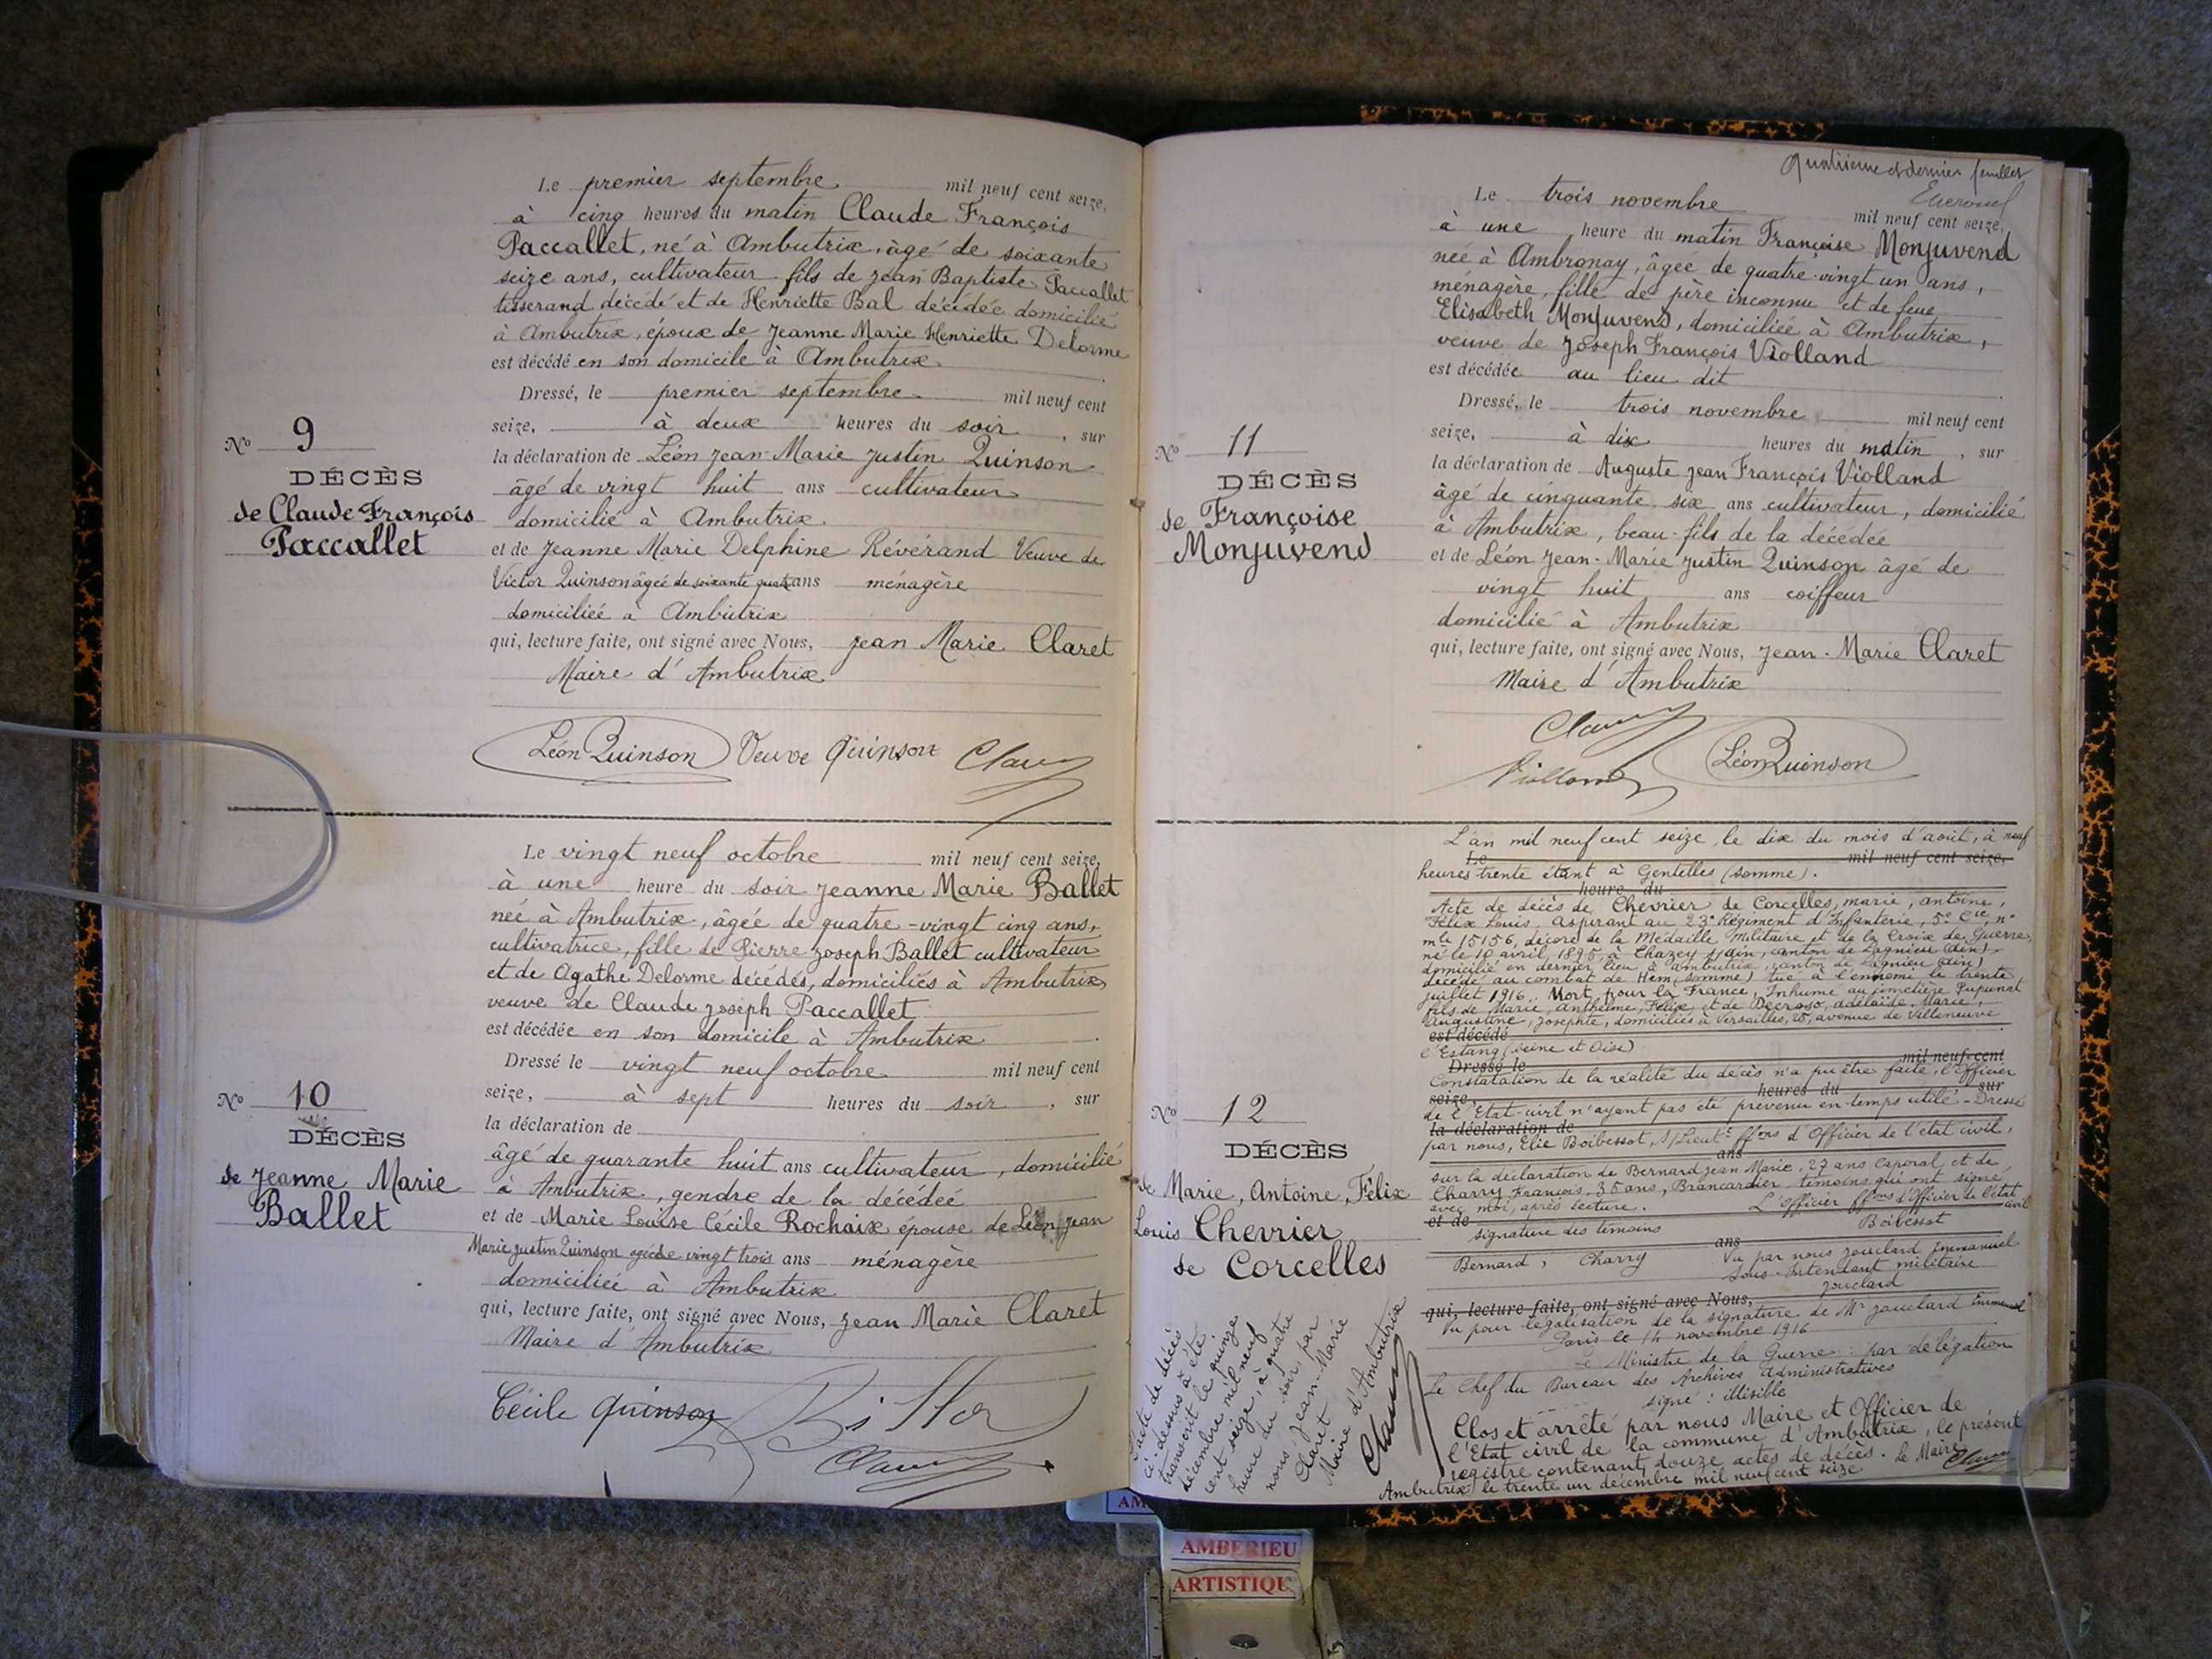 Le premier septembre mil neuf cent seize,
à cinq heures du matin Claude François
Paccallet, né à Ambutrix, âgé de soixante
seize ans, cultivateur fils de Jean Baptiste Paccallet
tisserand décédé et de Henriette Bal décédée domicilié
à Ambutrix, époux de Jeanne Marie Henriette Delorme
est décédé en son domicile à Ambutrix
Dressé, le premier septembre mil neuf cent
seize, à deux heures du soir, sur
la déclaration de Léon Jean-Marie Justin Quinson
âgé de vingt huit ans cultivateur
domicilié à Ambutrix
et de Jeanne Marie Delphine Révérand Veuve de
Victor Quinson âgée de soixante quatre ans ménagère
domiciliée à Ambutrix
qui, lecture faite, ont signé avec Nous, Jean Marie Claret
Maire d'Ambutrix
Léon Quinson Veuve Quinson Claret
No 9
DÉCÈS
de Claude François
Paccallet
Le vingt neuf octobre mil neuf cent seize,
à une heure du soir Jeanne Marie Ballet
née à Ambutrix, âgée de quatre-vingt cinq ans,
cultivatrice, fille de Pierre Joseph Ballet cultivateur
et de Agathe Delorme décédés, domiciliés à Ambutrix,
veuve de Claude Joseph Paccallet
est décédée en son domicile à Ambutrix
Dressé le vingt neuf octobre mil neuf cent
seize, à sept heures du soir, sur
la déclaration de
âgé de quarante huit ans cultivateur, domicilié
à Ambutrix, gendre de la décédée
et de Marie Louise Cécile Rochaix épouse de Léon Jean
Marie Justin Quinson agée de vingt trois ans ménagère
domiciliée à Ambutrix
qui, lecture faite, ont signé avec Nous, Jean Marie Claret
Maire d'Ambutrix
Cécile Quinson
Claret
No 10
DÉCÈS
de Jeanne Marie
Ballet
Quatrième et dernier feuillet
Le trois novembre mil neuf cent seize,
à une heure du matin Françoise Monjuvend
née à Ambronay, âgée de quatre-vingt un ans,
ménagère, fille de père inconnu et de feue
Elisabeth Monjuvend, domiciliée à Ambutrix,
veuve de Joseph François Violland
est décédée au lieu dit
Dressé, le trois novembre mil neuf cent
seize, à dix heures du matin, sur
la déclaration de Auguste Jean François Violland
âgé de cinquante six ans cultivateur, domicilié
à Ambutrix, beau-fils de la décédée
et de Léon Jean-Marie Justin Quinson âgé de
vingt huit ans coiffeur
domicilié à Ambutrix
qui, lecture faite, ont signé avec Nous, Jean-Marie Claret
Maire d'Ambutrix
Claret
Violland Léon Quinson
No 11
DÉCÈS
de Françoise
Monjuvend
L'an mil neuf cent seize, le dix du mois d'août, à neuf
Le mil neuf cent seize,
heures trente étant à Gentelles (Somme).
heure du
Acte de décès de Chevrier de Corcelles, marie, antoine,
Félix Louis, Aspirant au 23e Régiment d'Infanterie, 5e Cie, no
mle 15156, décoré de la Médaille Militaire et de la Croix de Guerre,
né le 10 avril 1895, à Chazey s/ain, canton de Lagnieu (Ain)
domicilié en dernier lieu à Ambutrix, canton de Lagnieu (Ain)
décédé au combat de Hem (Somme) tué à l'ennemi le trente
juillet 1916. Mort pour la France, Inhumé au cimetière Pupunat
fils de Marie, Anthelme, Félix et de Decroso, adélaïde, Marie,
Augustine, Josephte, domiciliés à Versailles, 25, avenue de Villeneuve
est décédé
l'Estang (Seine et Oise)
Dressé le mil neuf cent
Constatation de la réalité du décès n'a pu être faite, l'Officier
seize, heures du sur
de l'Etat-civil n'ayant pas été prévenu en temps utile - Dressé
la déclaration de
par nous, Elie Boibessot, S/Lieutt ffons d'Officier de l'état civil,
ans
sur la déclaration de Bernard Jean Marie, 27 ans Caporal et de
Charry François, 35 ans, Brancardier témoins qui ont signé
avec moi, après lecture. L'officier ffons d'Officier de l'état civil
et de
signature des témoins Boibessot
ans
Bernard, Charry Vu par nous Jouclard Emmanuel
Sous-Intendant militaire
Jouclard
qui, lecture faite, ont signé avec Nous,
Vu pour légalisation de la signature de Mr Jouclard Emmanuel
Paris le 14 novembre 1916
Le Ministre de la Guerre : par délégation
Le Chef du Bureau des Archives Administratives
signé : illisible
Clos et arrêté par nous Maire et Officier de
l'Etat civil de la commune d'Ambutrix, le présent
registre contenant douze actes de décès. Le Maire
Ambutrix, le trente un décembre mil neuf cent seize
Claret
No 12
DÉCÈS
de Marie, Antoine, Félix
Louis Chevrier
de Corcelles
L'acte de décès
ci-dessus a été
transcrit le quinze
décembre mil neuf
cent seize, à quatre
heure du soir, par
nous Jean-Marie
Claret
Maire d'Ambutrix
Claret
AMBERIEU
ARTISTIQU